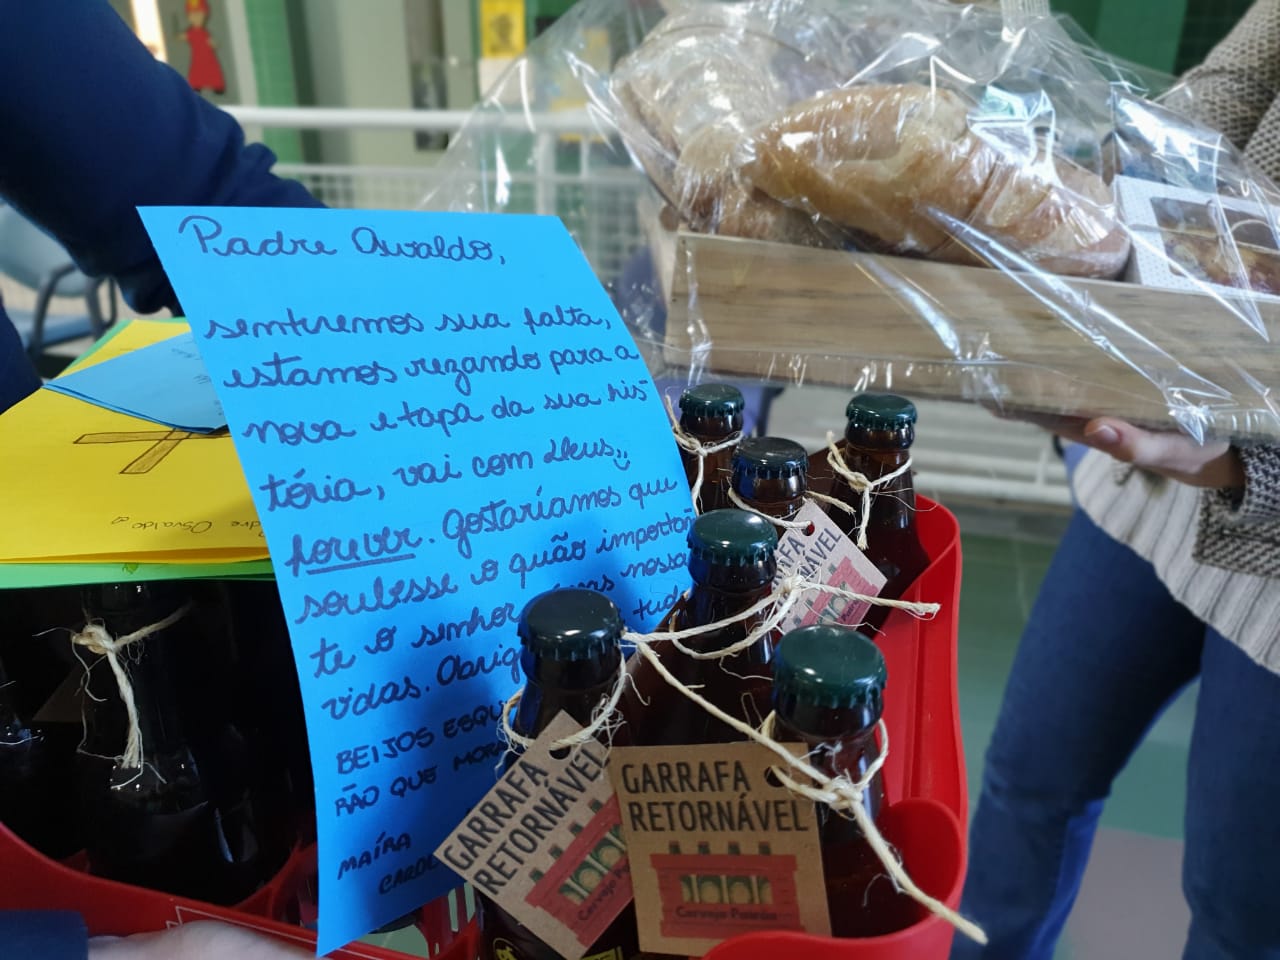 Padre Osvaldo,
sentiremos sua falta,
estamos rezando para a
nova etapa da sua his-
tória, vai com Deus
forever. Gostaríamos que
soubesse o quão importan
te o senhor nossa
vidas. Obrig tud
BEIJOS ESQU
RÃO QUE MORA
MAÍRA
CAROL
Padre Osvaldo
GARRAFA
RETORNÁVEL
GARRAFA
RETORNÁVEL
Cerveja
GARRAFA
RETORNÁVEL
Cerveja